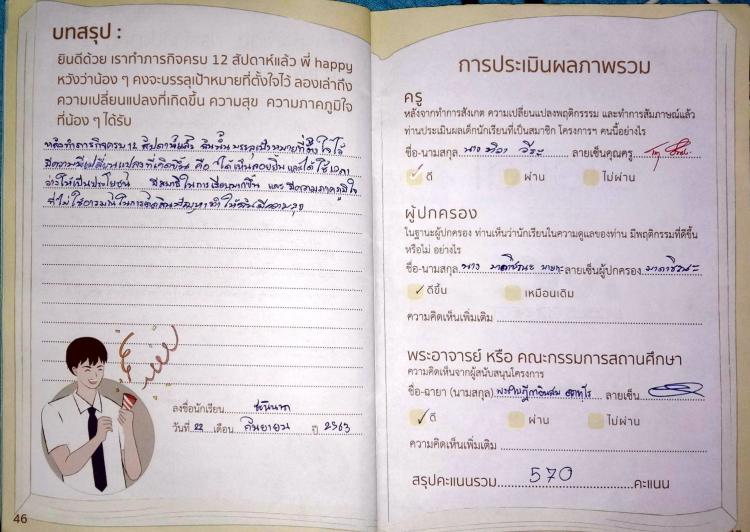 บทสรุป :
ยินดีด้วย เราทำภารกิจครบ 12 สัปดาห์แล้ว พี่ happy
หวังว่าน้อง ๆ คงจะบรรลุเป้าหมายที่ตั้งใจไว้ ลองเล่าถึง
ความเปลี่ยนแปลงที่เกิดขึ้น ความสุข ความภาคภูมิใจ
ที่น้อง ๆ ได้รับ
หลังทำภารกิจครบ 12 สัปดาห์แล้ว ฉันนั้นบรรลุเป้าหมายที่ตั้งใจไว้
มีความเปลี่ยนแปลงที่เกิดขึ้น คือ ได้เก็บออมเงินและได้ใช้เวลา
ว่างให้เป็นประโยชน์ มีสมาธิในการเรียนมากขึ้น และมีความภาคภูมิใจ
ที่ไม่ใช้อารมณ์ในการตัดสินปัญหาทำให้ฉันมีความสุข
ลงชื่อนักเรียน
วันที่ 22 เดือน กันยายน ปี 2563
46
การประเมินผลภาพรวม
ครู
หลังจากทำการสังเกต ความเปลี่ยนแปลงพฤติกรรม และทำการสัมภาษณ์แล้ว
ท่านประเมินผลเด็กนักเรียนที่เป็นสมาชิก โครงการฯ คนนี้อย่างไร
ชื่อ-นามสกุล นาง วีระ ลายเซ็นคุณครู
✓ ดี ผ่าน ไม่ผ่าน
ผู้ปกครอง
ในฐานะผู้ปกครอง ท่านเห็นว่านักเรียนในความดูแลของท่าน มีพฤติกรรมที่ดีขึ้น
หรือไม่ อย่างไร
ชื่อ-นามสกุล นาง ลายเซ็นผู้ปกครอง
✓ ดีขึ้น เหมือนเดิม
ความคิดเห็นเพิ่มเติม
พระอาจารย์ หรือ คณะกรรมการสถานศึกษา
ความคิดเห็นจากผู้สนับสนุนโครงการ
ชื่อ-ฉายา (นามสกุล) ลายเซ็น
✓ ดี ผ่าน ไม่ผ่าน
ความคิดเห็นเพิ่มเติม
สรุปคะแนนรวม 570 คะแนน